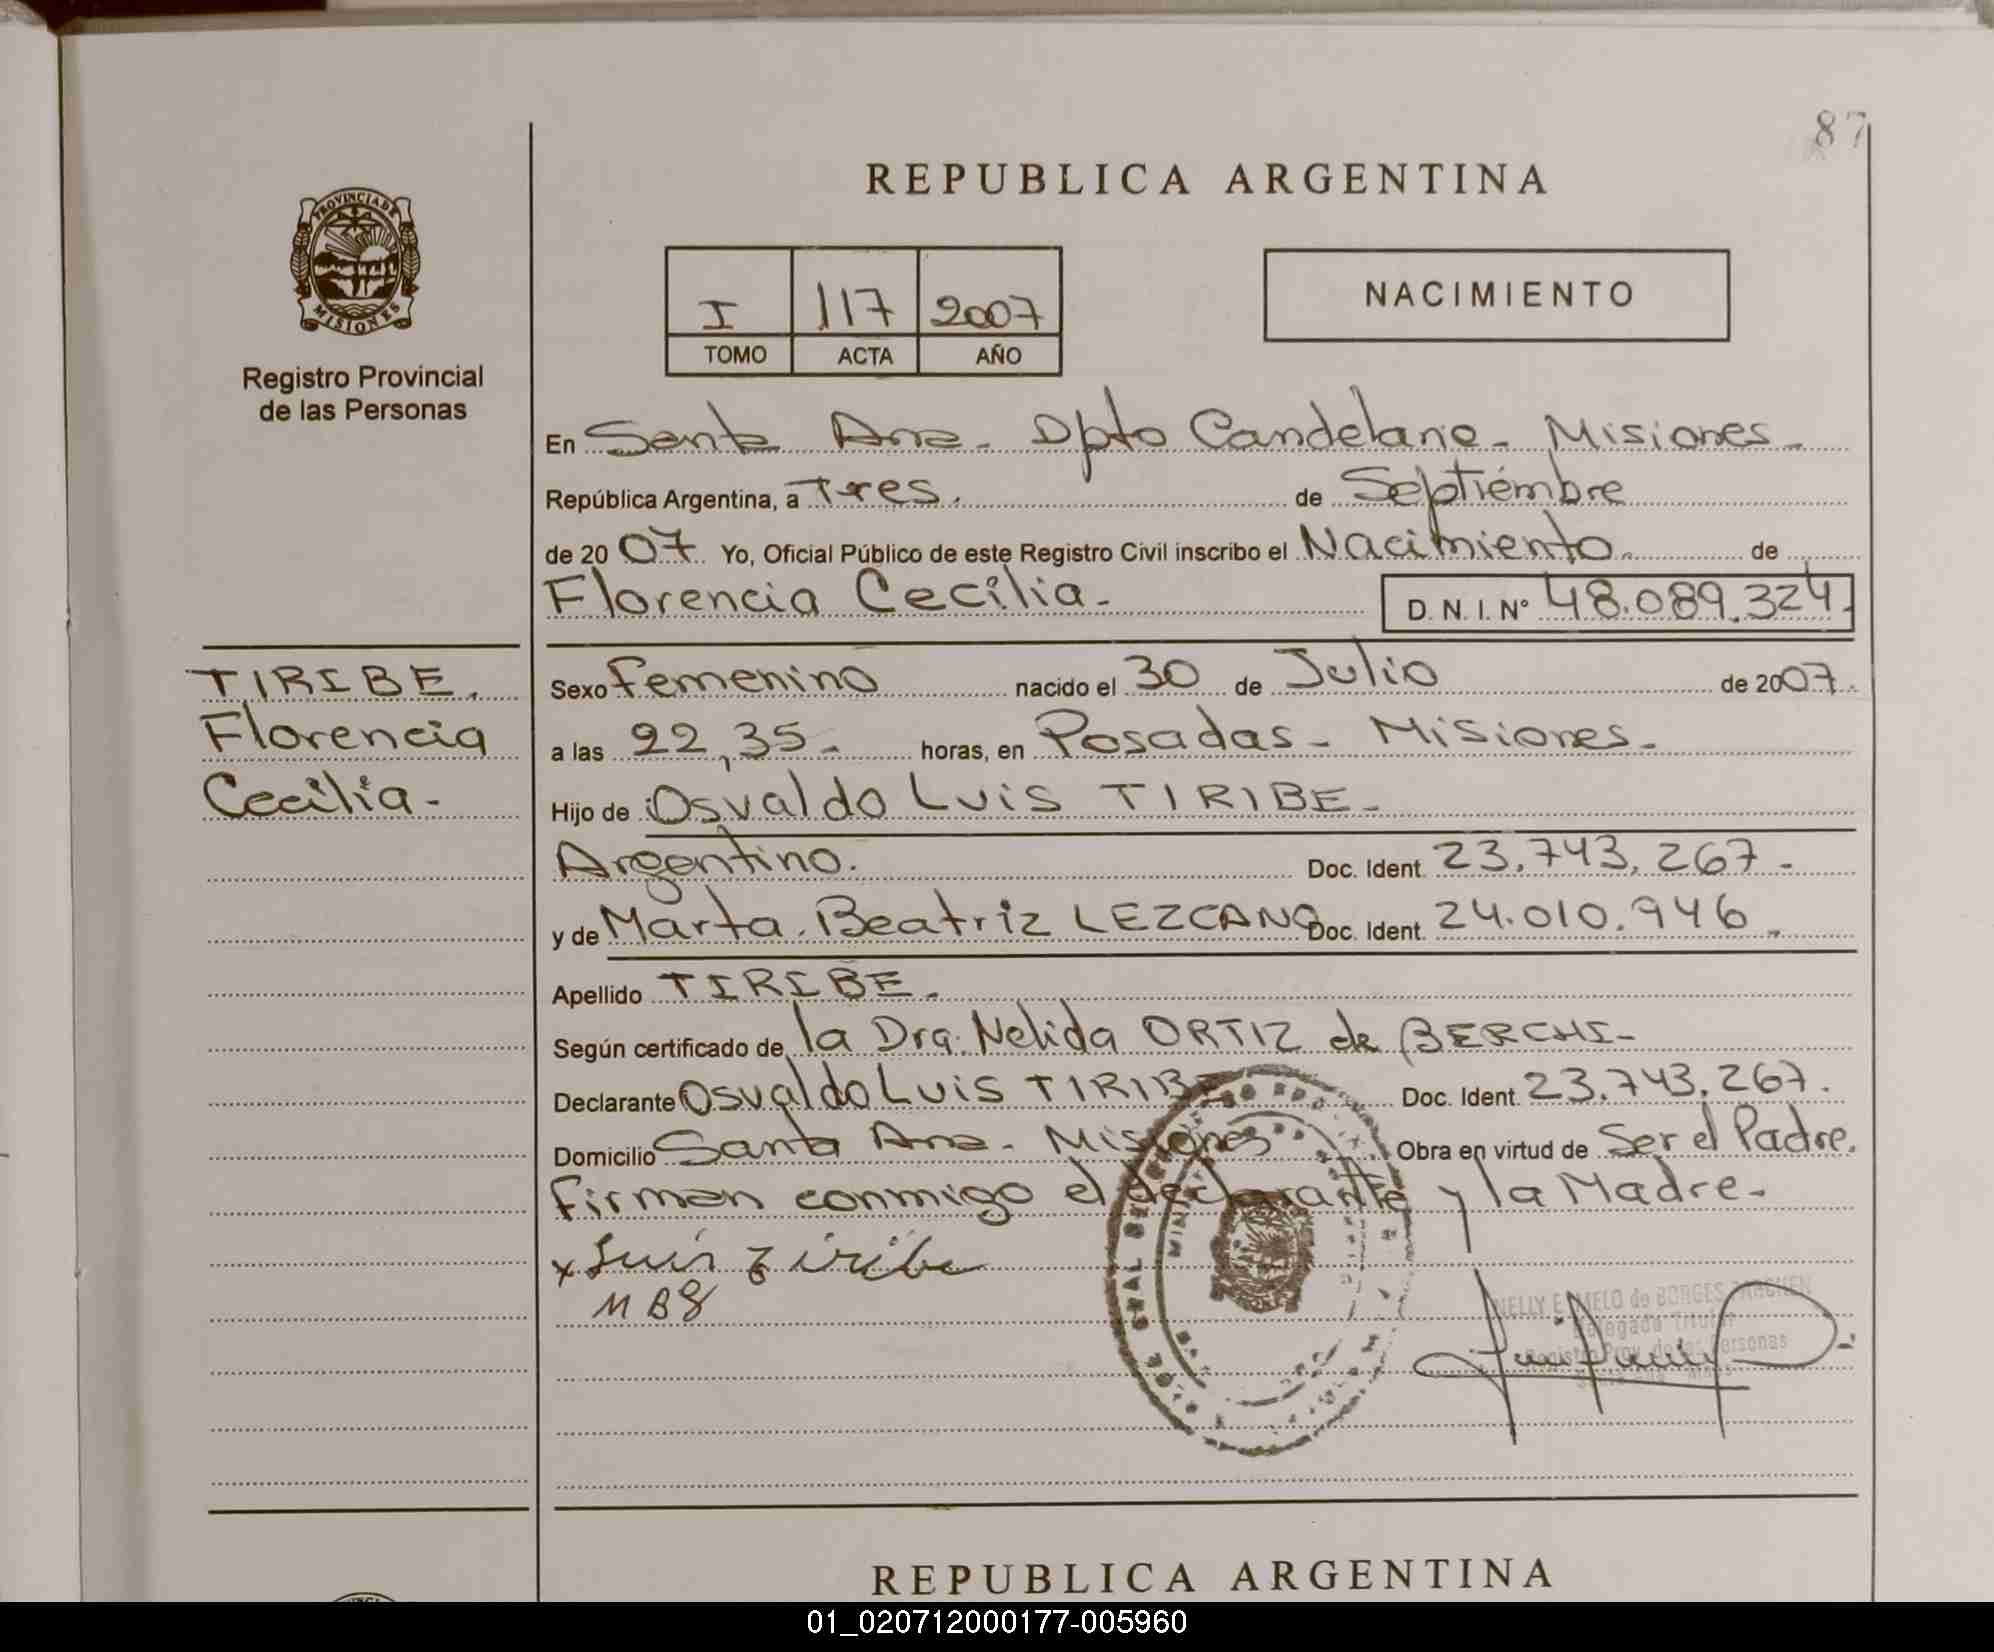 87
REPUBLICA ARGENTINA
PROVINCIA DE
MISIONES
Registro Provincial
de las Personas
I 117 2007
TOMO ACTA AÑO
NACIMIENTO
En Santa Ana - Dpto Candelaria - Misiones -
República Argentina, a Tres. de Septiembre
de 2007. Yo, Oficial Público de este Registro Civil inscribo el Nacimiento. de
Florencia Cecilia - D. N. I. Nº 48.089.324.
TIRIBE.
Florencia
Cecilia -
Sexo femenino nacido el 30 de Julio de 2007.
a las 22,35 - horas, en Posadas - Misiones -
Hijo de Osvaldo Luis TIRIBE -
Argentino. Doc. Ident. 23.743.267 -
y de Marta Beatriz LEZCANO Doc. Ident. 24.010.946
Apellido TIRIBE.
Según certificado de la Dra. Nelida ORTIZ de BERCHI -
Declarante Osvaldo Luis TIRIBE Doc. Ident. 23.743.267.
Domicilio Santa Ana - Misiones Obra en virtud de Ser el Padre.
firman conmigo el declarante y la Madre -
x Luis Tiribe
NELLY E. MELO de BORGES
Delegada Titular
Registro Prov. de las Personas
REPUBLICA ARGENTINA
01_020712000177-005960